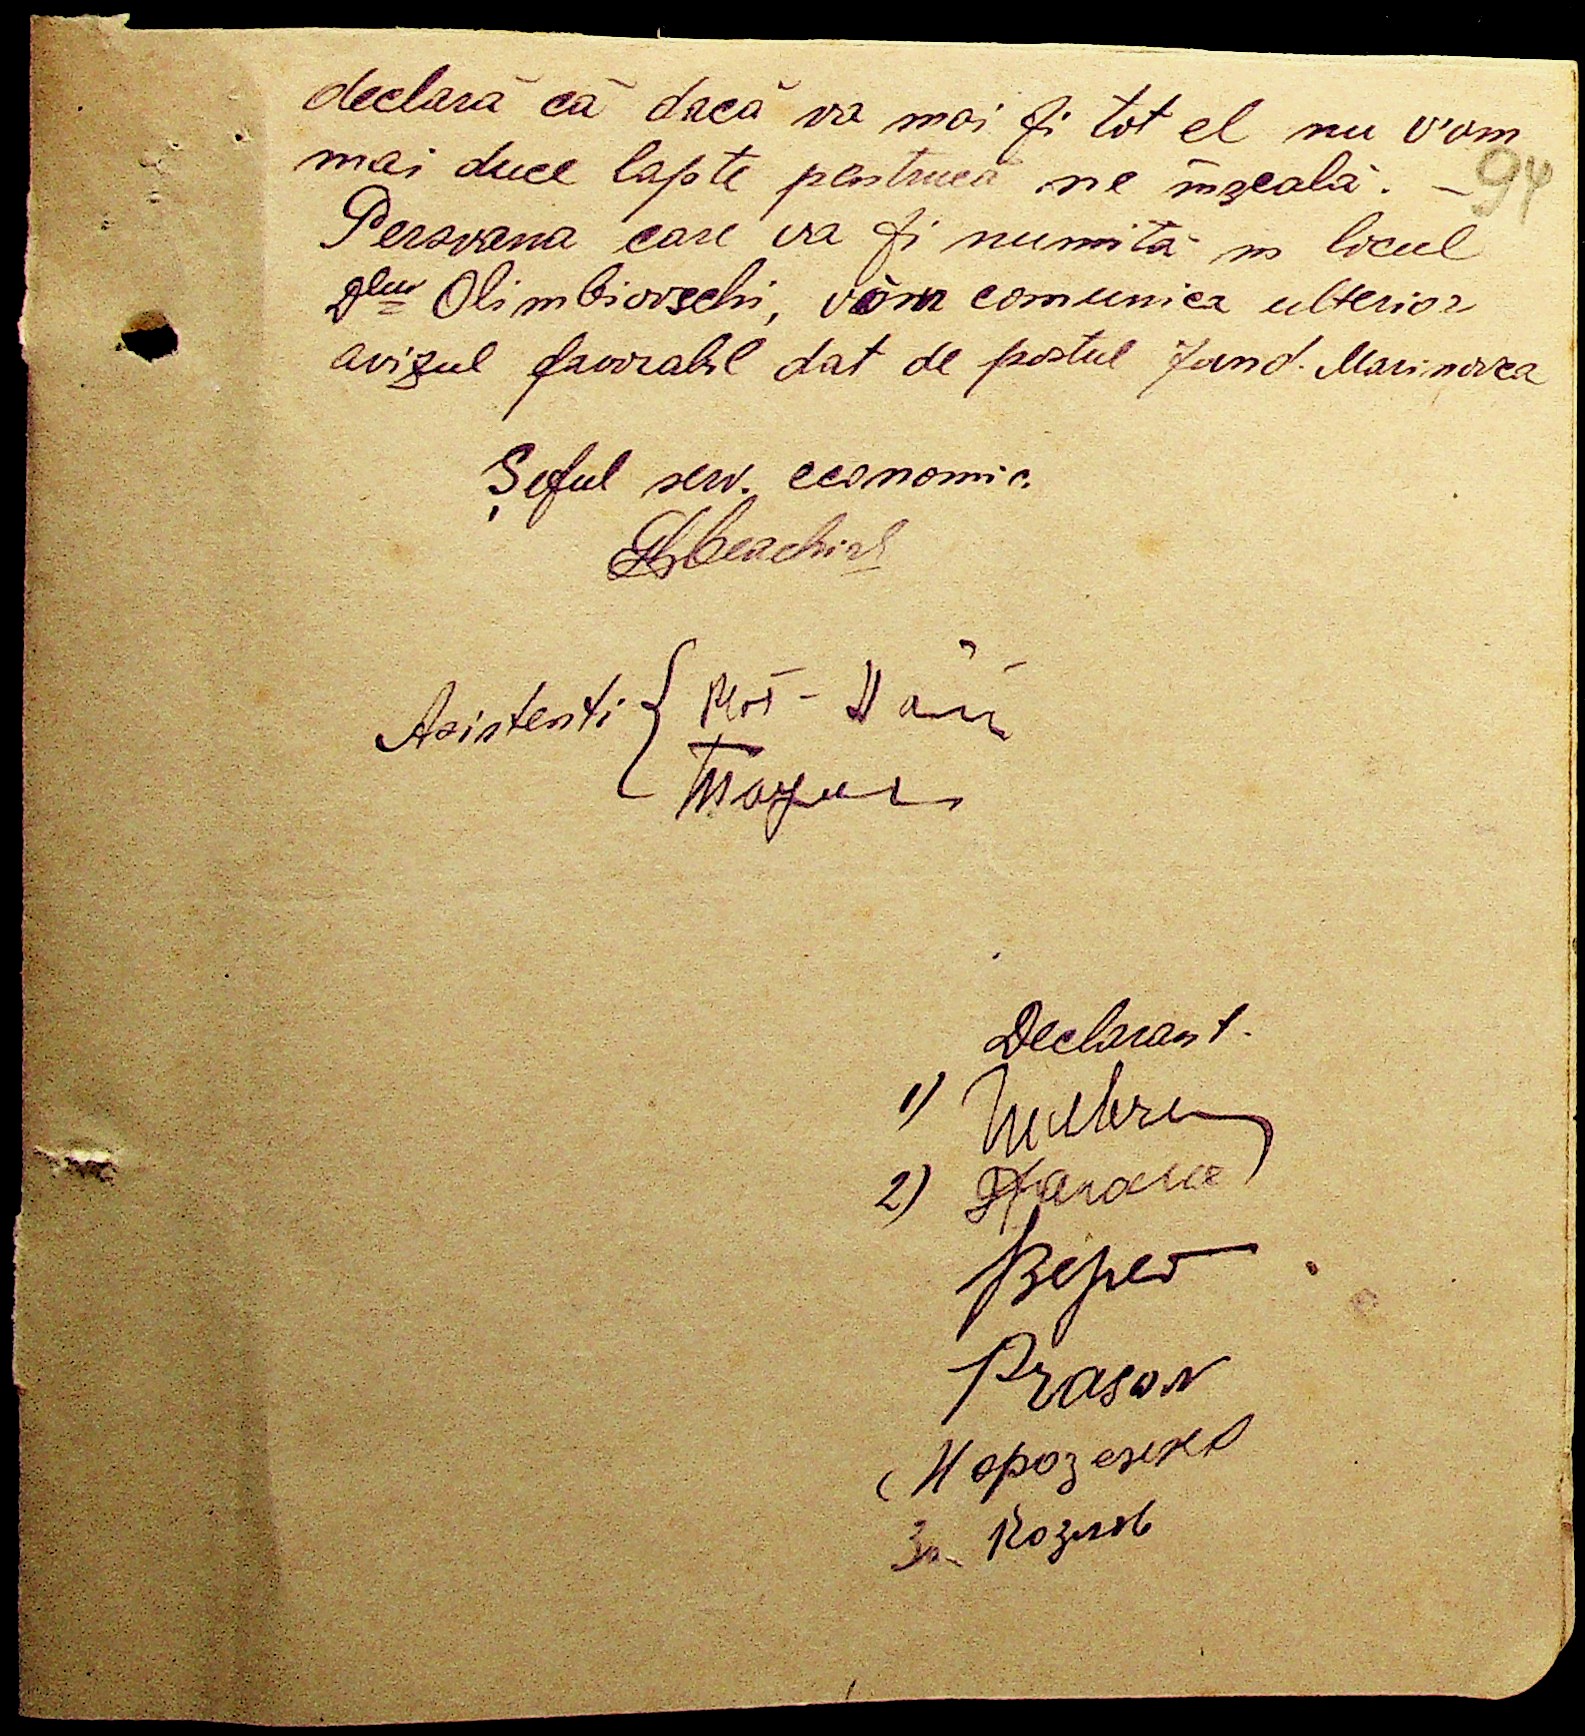 declară că dacă va mai fi tot el nu v'om
mai duce lapte pentrucă ne înșeală. –
94
Persoana care va fi numită în locul
Dlui Olimbiovschi, vom comunica ulterior
avizul favorabil dat de postul Jand. Marinovca
Șeful serv. economic.
Asistenti {
Declarant.
1)
2)
Beret
Prason
За Козлов